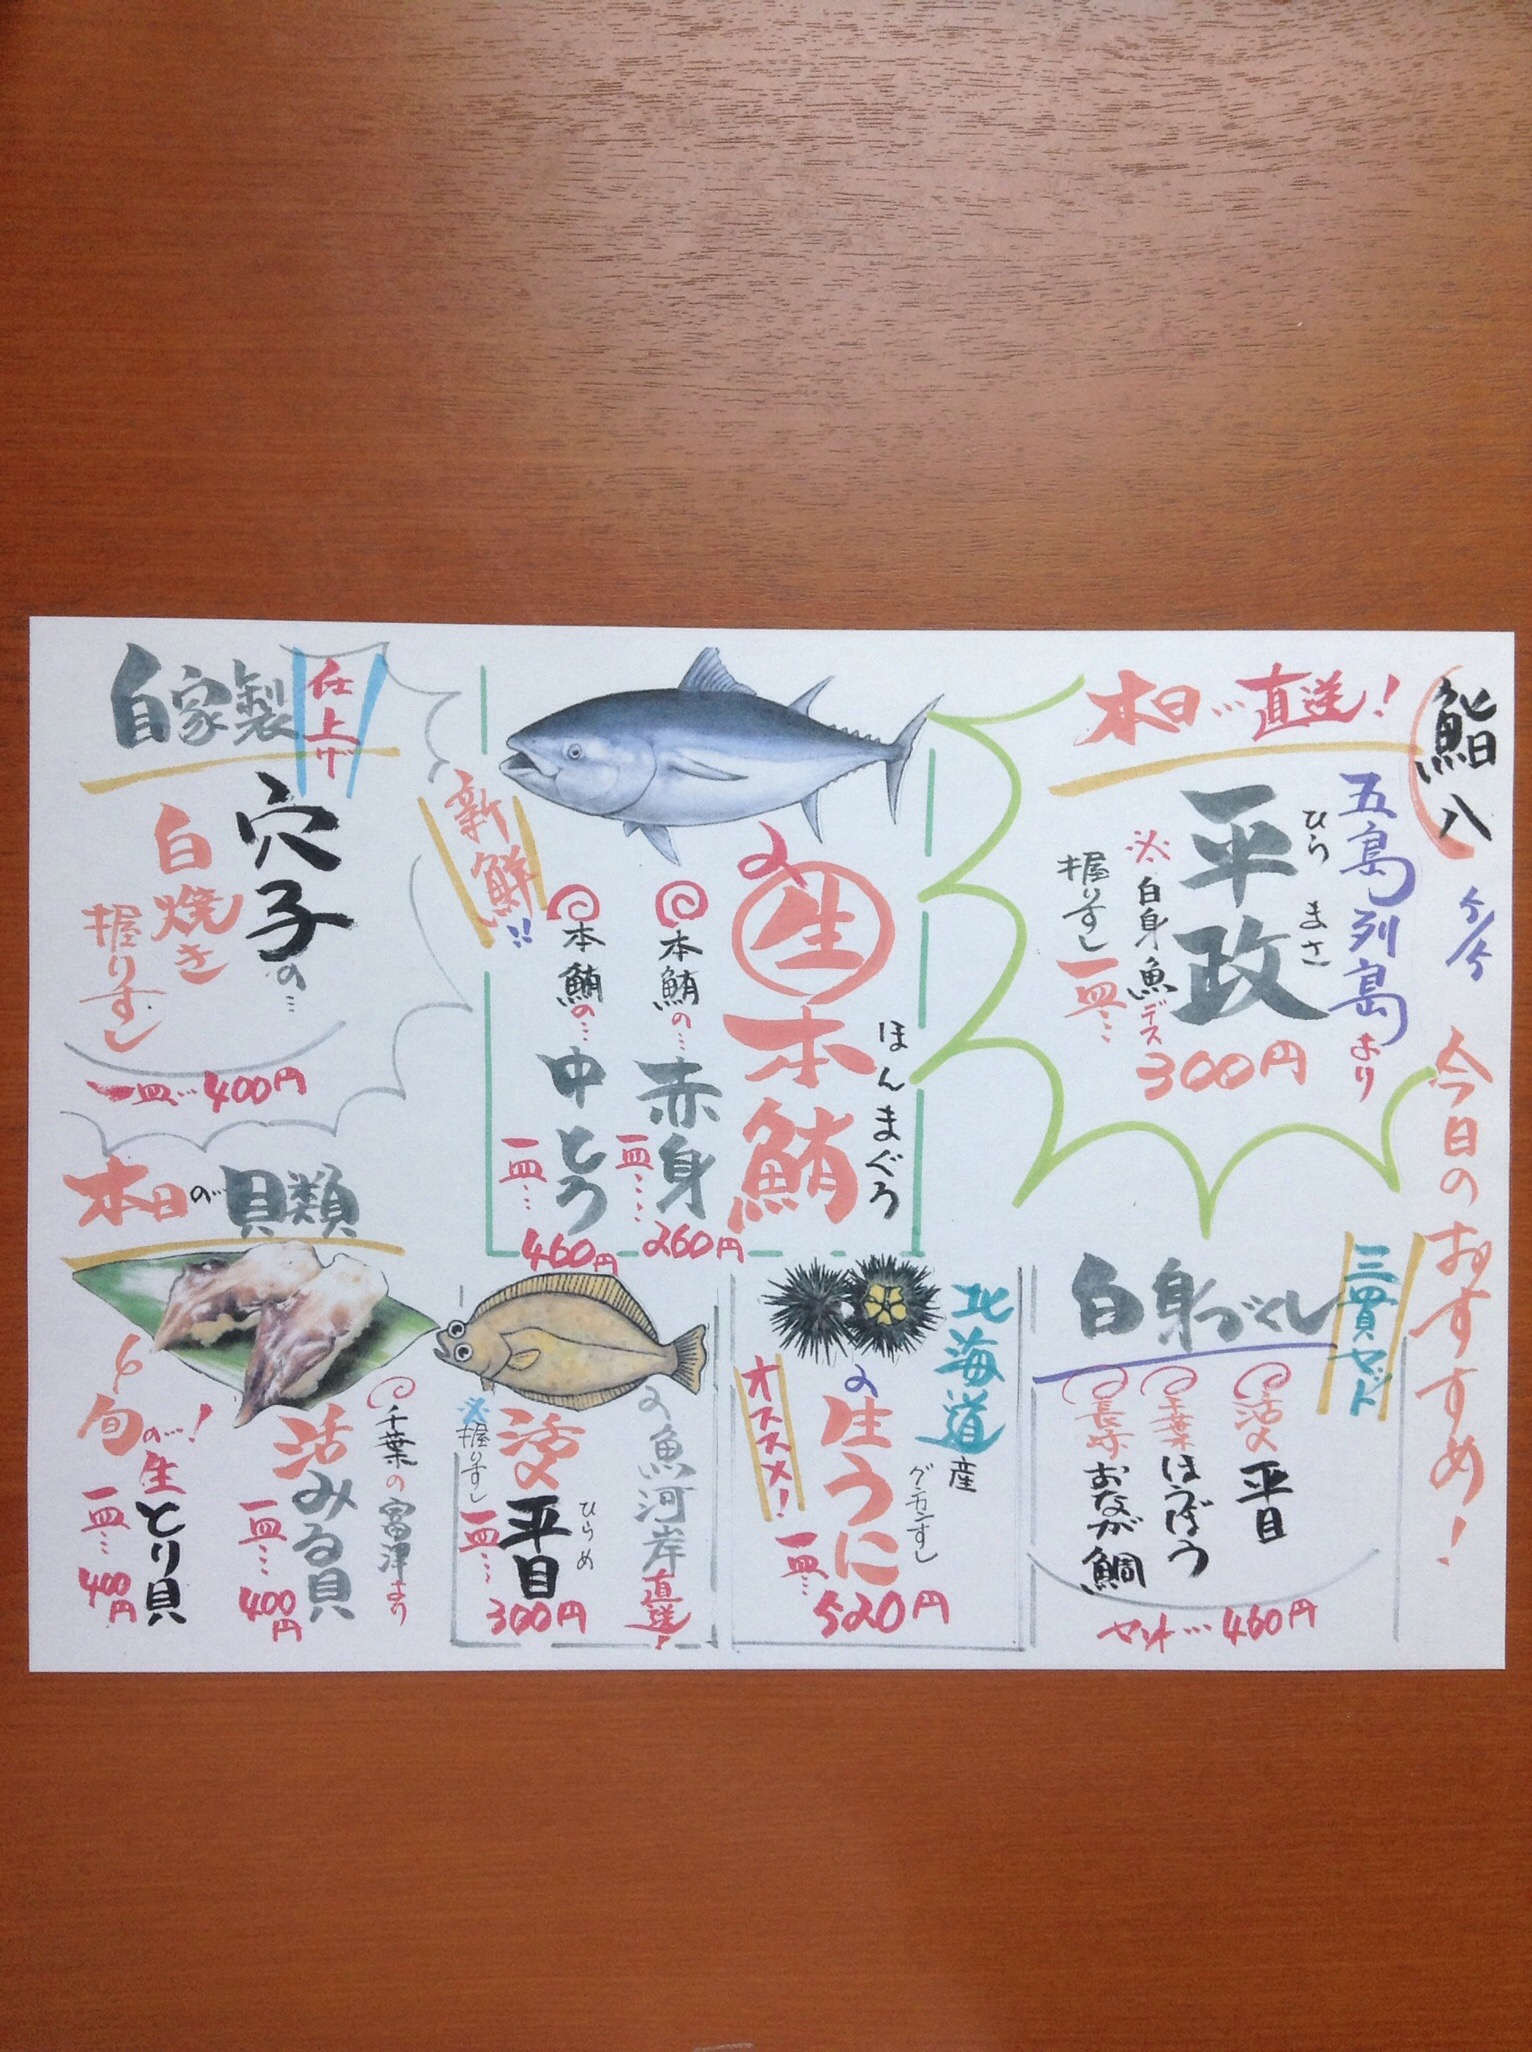 鮨八
5/5
今日のおすすめ！
本日…直送！
五島列島より
ひらまさ
平政
※白身魚デス
握りすし
一皿…
300円
三貫セット
白身づくし
活〆平目
千葉ほうぼう
長崎おなが鯛
セット…460円
ほんまぐろ
生本鮪
新鮮!!
本鮪の…
赤身
一皿…
260円
本鮪の…
中とろ
一皿…
460円
北海道産
生うに
グンカンすし
オススメ！
一皿…
520円
魚河岸直送！
ひらめ
活〆平目
※握りすし
一皿…
300円
自家製仕上げ
穴子の…
白焼き
握りすし
一皿…400円
本日の貝類
千葉の富津より
活みる貝
一皿…
400円
旬の！
生とり貝
一皿…
400円